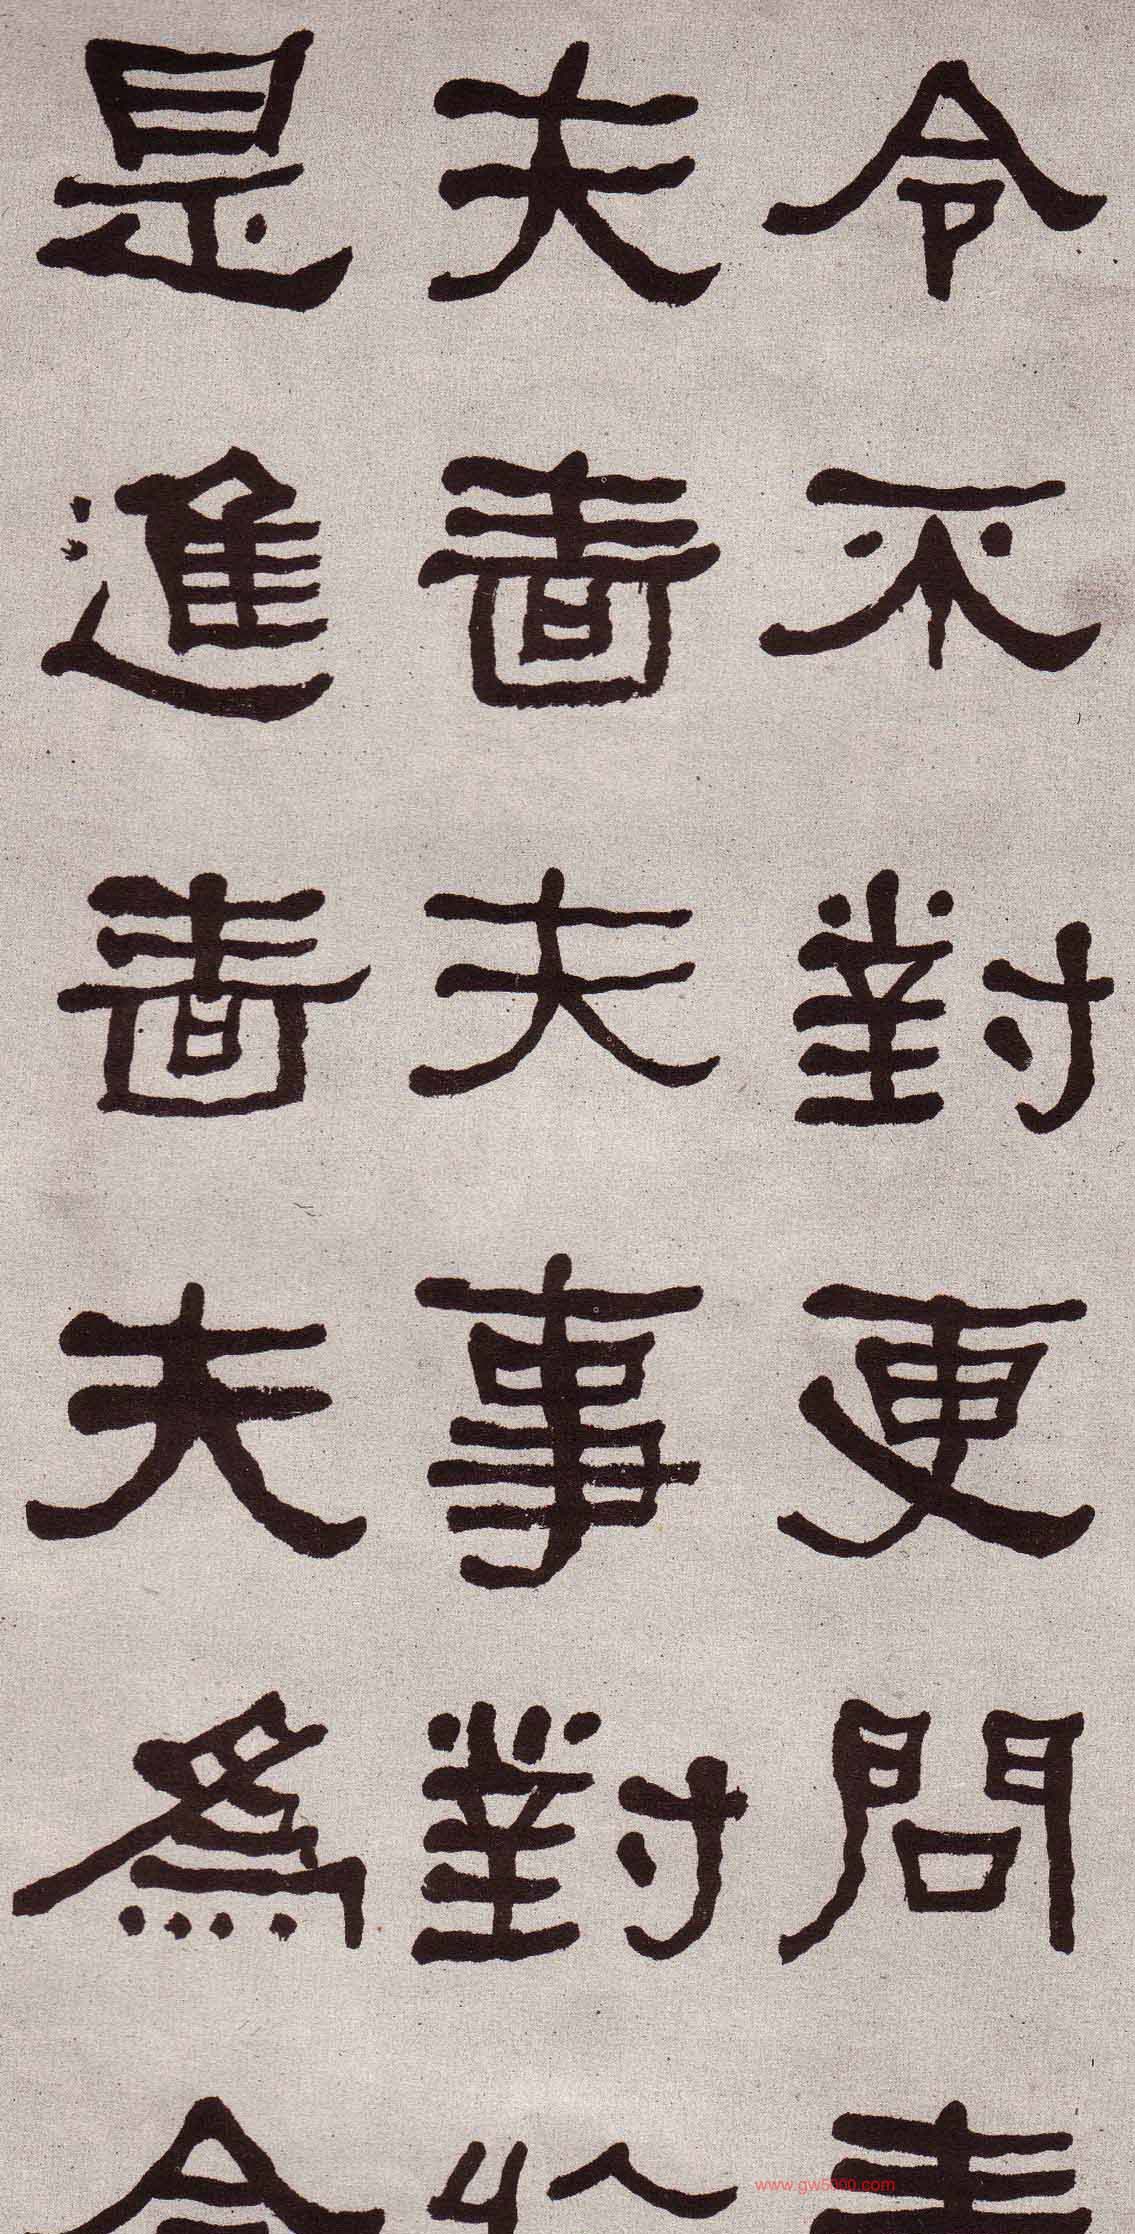 令不對更問嗇
夫嗇夫事對於
是進嗇夫爲令
www.gw5000.com